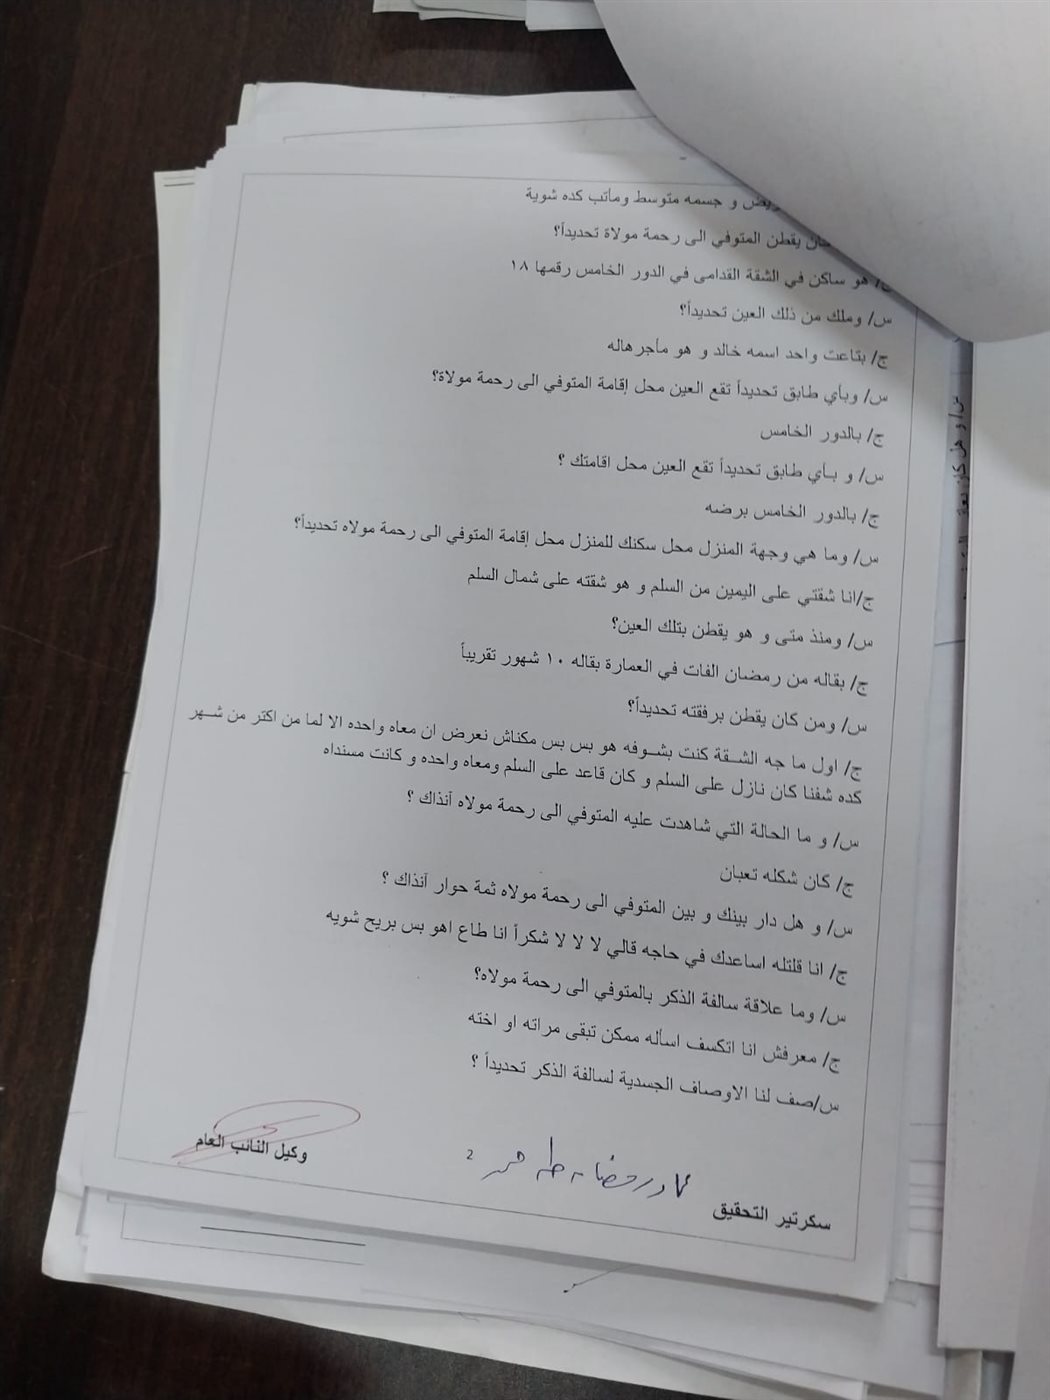 و جسمه متوسط ومأتب كده شوية
يقطن المتوفي الى رحمة مولاة تحديداً؟
هو ساكن في الشقة القدامى في الدور الخامس رقمها ١٨
س/ وملك من ذلك العين تحديداً؟
ج/ بتاعت واحد اسمه خالد و هو مأجرهاله
س/ وبأي طابق تحديداً تقع العين محل إقامة المتوفي الى رحمة مولاة؟
ج/ بالدور الخامس
س/ و بأي طابق تحديداً تقع العين محل اقامتك ؟
ج/ بالدور الخامس برضه
س/ وما هي وجهة المنزل محل سكنك للمنزل محل إقامة المتوفي الى رحمة مولاه تحديداً؟
ج/انا شقتي على اليمين من السلم و هو شقته على شمال السلم
س/ ومنذ متى و هو يقطن بتلك العين؟
ج/ بقاله من رمضان الفات في العمارة بقاله ١٠ شهور تقريباً
س/ ومن كان يقطن برفقته تحديداً؟
ج/ اول ما جه الشقة كنت بشوفه هو بس بس مكناش نعرض ان معاه واحده الا لما من اكتر من شهر
كده شفنا كان نازل على السلم و كان قاعد على السلم ومعاه واحده و كانت مسنداه
س/ و ما الحالة التي شاهدت عليه المتوفي الى رحمة مولاه آنذاك ؟
ج/ كان شكله تعبان
س/ و هل دار بينك و بين المتوفي الى رحمة مولاه ثمة حوار آنذاك ؟
ج/ انا قلتله اساعدك في حاجه قالي لا لا لا شكراً انا طاع اهو بس بريح شويه
س/ وما علاقة سالفة الذكر بالمتوفي الى رحمة مولاه؟
ج/ معرفش انا اتكسف اسأله ممكن تبقى مراته او اخته
س/صف لنا الاوصاف الجسدية لسالفة الذكر تحديداً ؟
سكرتير التحقيق
2
وكيل النائب العام
س/ و هل كان